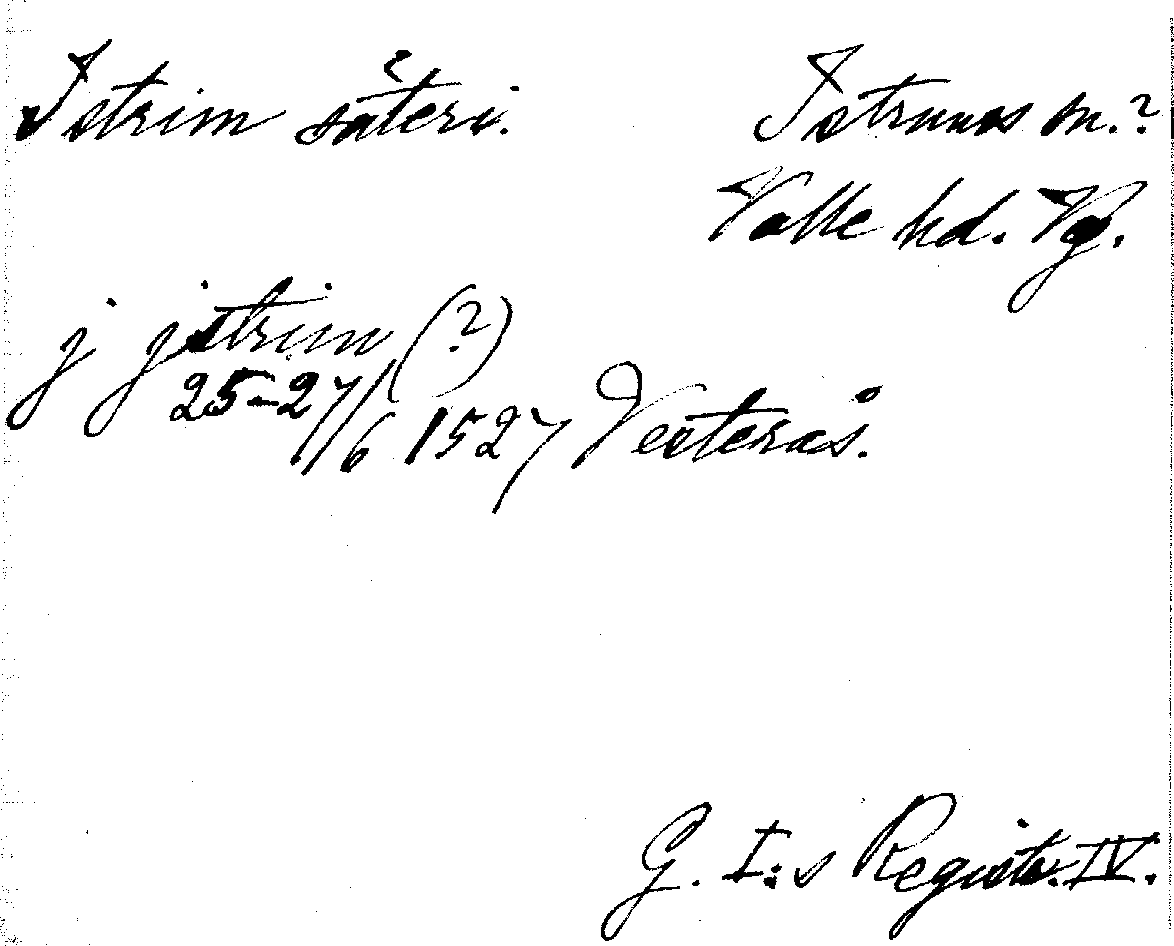 Istrim säteri.
Istrums sn.?
Valle hd. Vg.
j jstrim (?)
25-27/6 1527 Vesterås.
G. I:s Registr. IV.